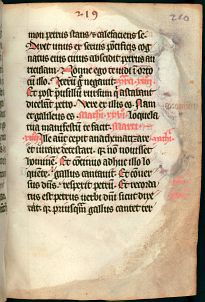 219
210
mon petrus stans ⁊ calefaciens se.
Dixit unus ex seruis pontificis cog
natus eius cuius abscidit petrus au
riculam. Nonne ego te uidi in orto
cu illo.
Et post pusillu uersum qui astabant
dicebant petro. Uere ex illis es. Nam
et galileus es Mathi. xxvi loquela
tua manifestum te facit Marci
xiiii Ille aut cepit anathematizare
et iurare detestari. q non nouisset
hominem. Et continuo adhuc illo lo
quente gallus cantauit. Et conuer
sus dns respexit petru. Et recorda
tus est petrus uerbi dni sicut dixe
rat. q priusqm gallus cantet ter